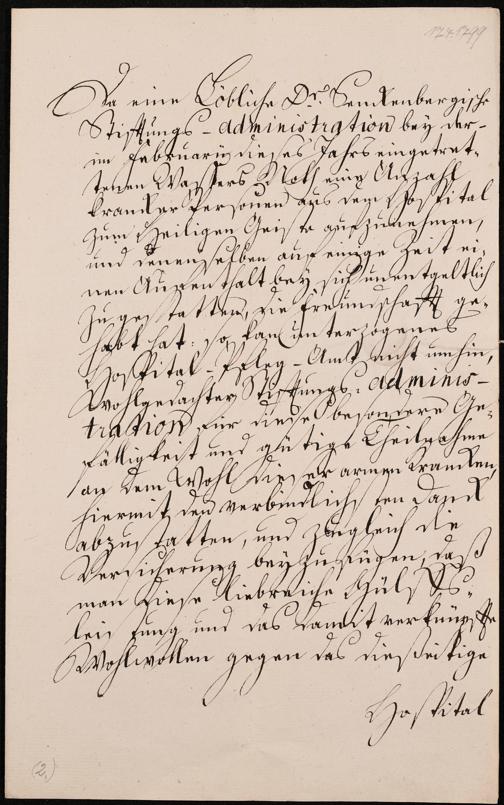 174.1799
Da eine Löbliche Dr. Senckenbergische
Stifftungs-administration bey der-
im February dieses Jahrs eingetret-
tenen Wassers Noth einig Anzahl
krancker Personen aus dem Hospital
zum Heiligen Geiste aufzunehmen,
und denenselben auf einige Zeit ei-
nen Auffenthalt bey sich unentgeltlich
zu gestatten, die Freundschafft ge-
habt hat: so kan unterzogenes
Hospital-Pfleg-Amt nicht umhin,
Wohlgedachter Stifftungs-adminis-
tration für diese besondere Ge-
fälligkeit und gütige Theilnahme
an dem Wohl dieser armen Krancken,
hiermit den verbindlichsten Danck
abzustatten, und zugleich die
Versicherung beyzufügen, daß
man diese liebreiche Hülffs-
leistung und das damit verknüpffte
Wohlwollen gegen das diesseitige
Hospital
(2.)